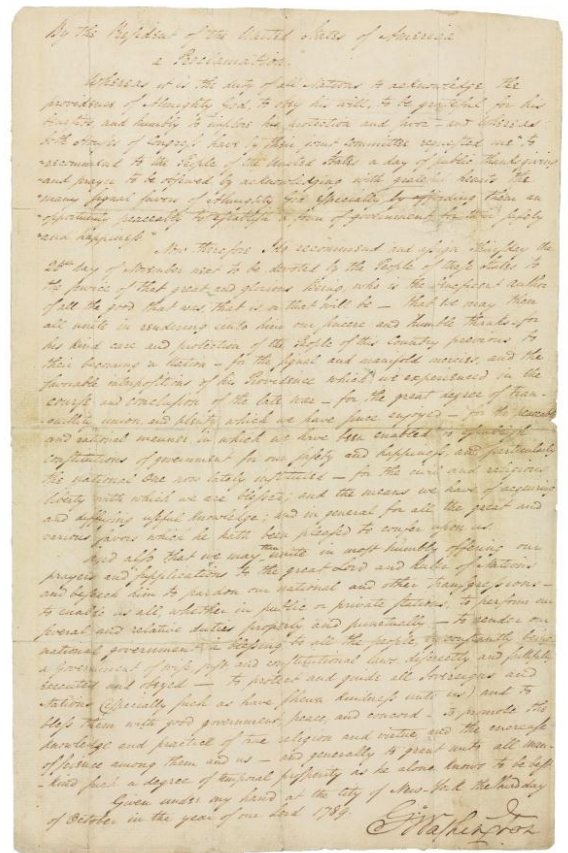 By the President of the United States of America
a Proclamation.
Whereas it is the duty of all Nations to acknowledge the
providence of Almighty God, to obey his will, to be grateful for his
benefits, and humbly to implore his protection and favor – and whereas
both Houses of Congress have by their joint Committee requested me "to
"recommend to the People of the United States a day of public thanksgiving
"and prayer to be observed by acknowledging with grateful hearts the
"many signal favors of Almighty God especially by affording them an
"opportunity peaceably to establish a form of government for their safety
"and happiness."
Now therefore I do recommend and assign Thursday the
26th day of November next to be devoted by the People of these States to
the service of that great and glorious Being, who is the beneficent Author
of all the good that was, that is, or that will be – that we may then
all unite in rendering unto him our sincere and humble thanks – for
his kind care and protection of the People of this Country previous to
their becoming a Nation – for the signal and manifold mercies, and the
favorable interpositions of his Providence which we experienced in the
course and conclusion of the late war – for the great degree of tran-
quillity, union, and plenty, which we have since enjoyed – for the peaceable
and rational manner in which we have been enabled to establish
constitutions of government for our safety and happiness, and particularly
the national One now lately instituted – for the civil and religious
liberty with which we are blessed; and the means we have of acquiring
and diffusing useful knowledge; and in general for all the great and
various favors which he hath been pleased to confer upon us.
And also that we may then unite in most humbly offering our
prayers and supplications to the great Lord and Ruler of Nations
and beseech him to pardon our national and other transgressions –
to enable us all, whether in public or private stations, to perform our
several and relative duties properly and punctually – to render our
national government a blessing to all the people, by constantly being
a government of wise, just and constitutional laws, discreetly and faithfully
executed and obeyed – to protect and guide all Sovereigns and
Nations (especially such as have shewn kindness unto us) and to
bless them with good government, peace, and concord – To promote the
knowledge and practice of true religion and virtue, and the encrease
of science among them and us – and generally to grant unto all man-
-kind such a degree of temporal prosperity as he alone knows to be best.
Given under my hand at the city of New-York the third day
of October in the year of our Lord 1789.
Go. Washington